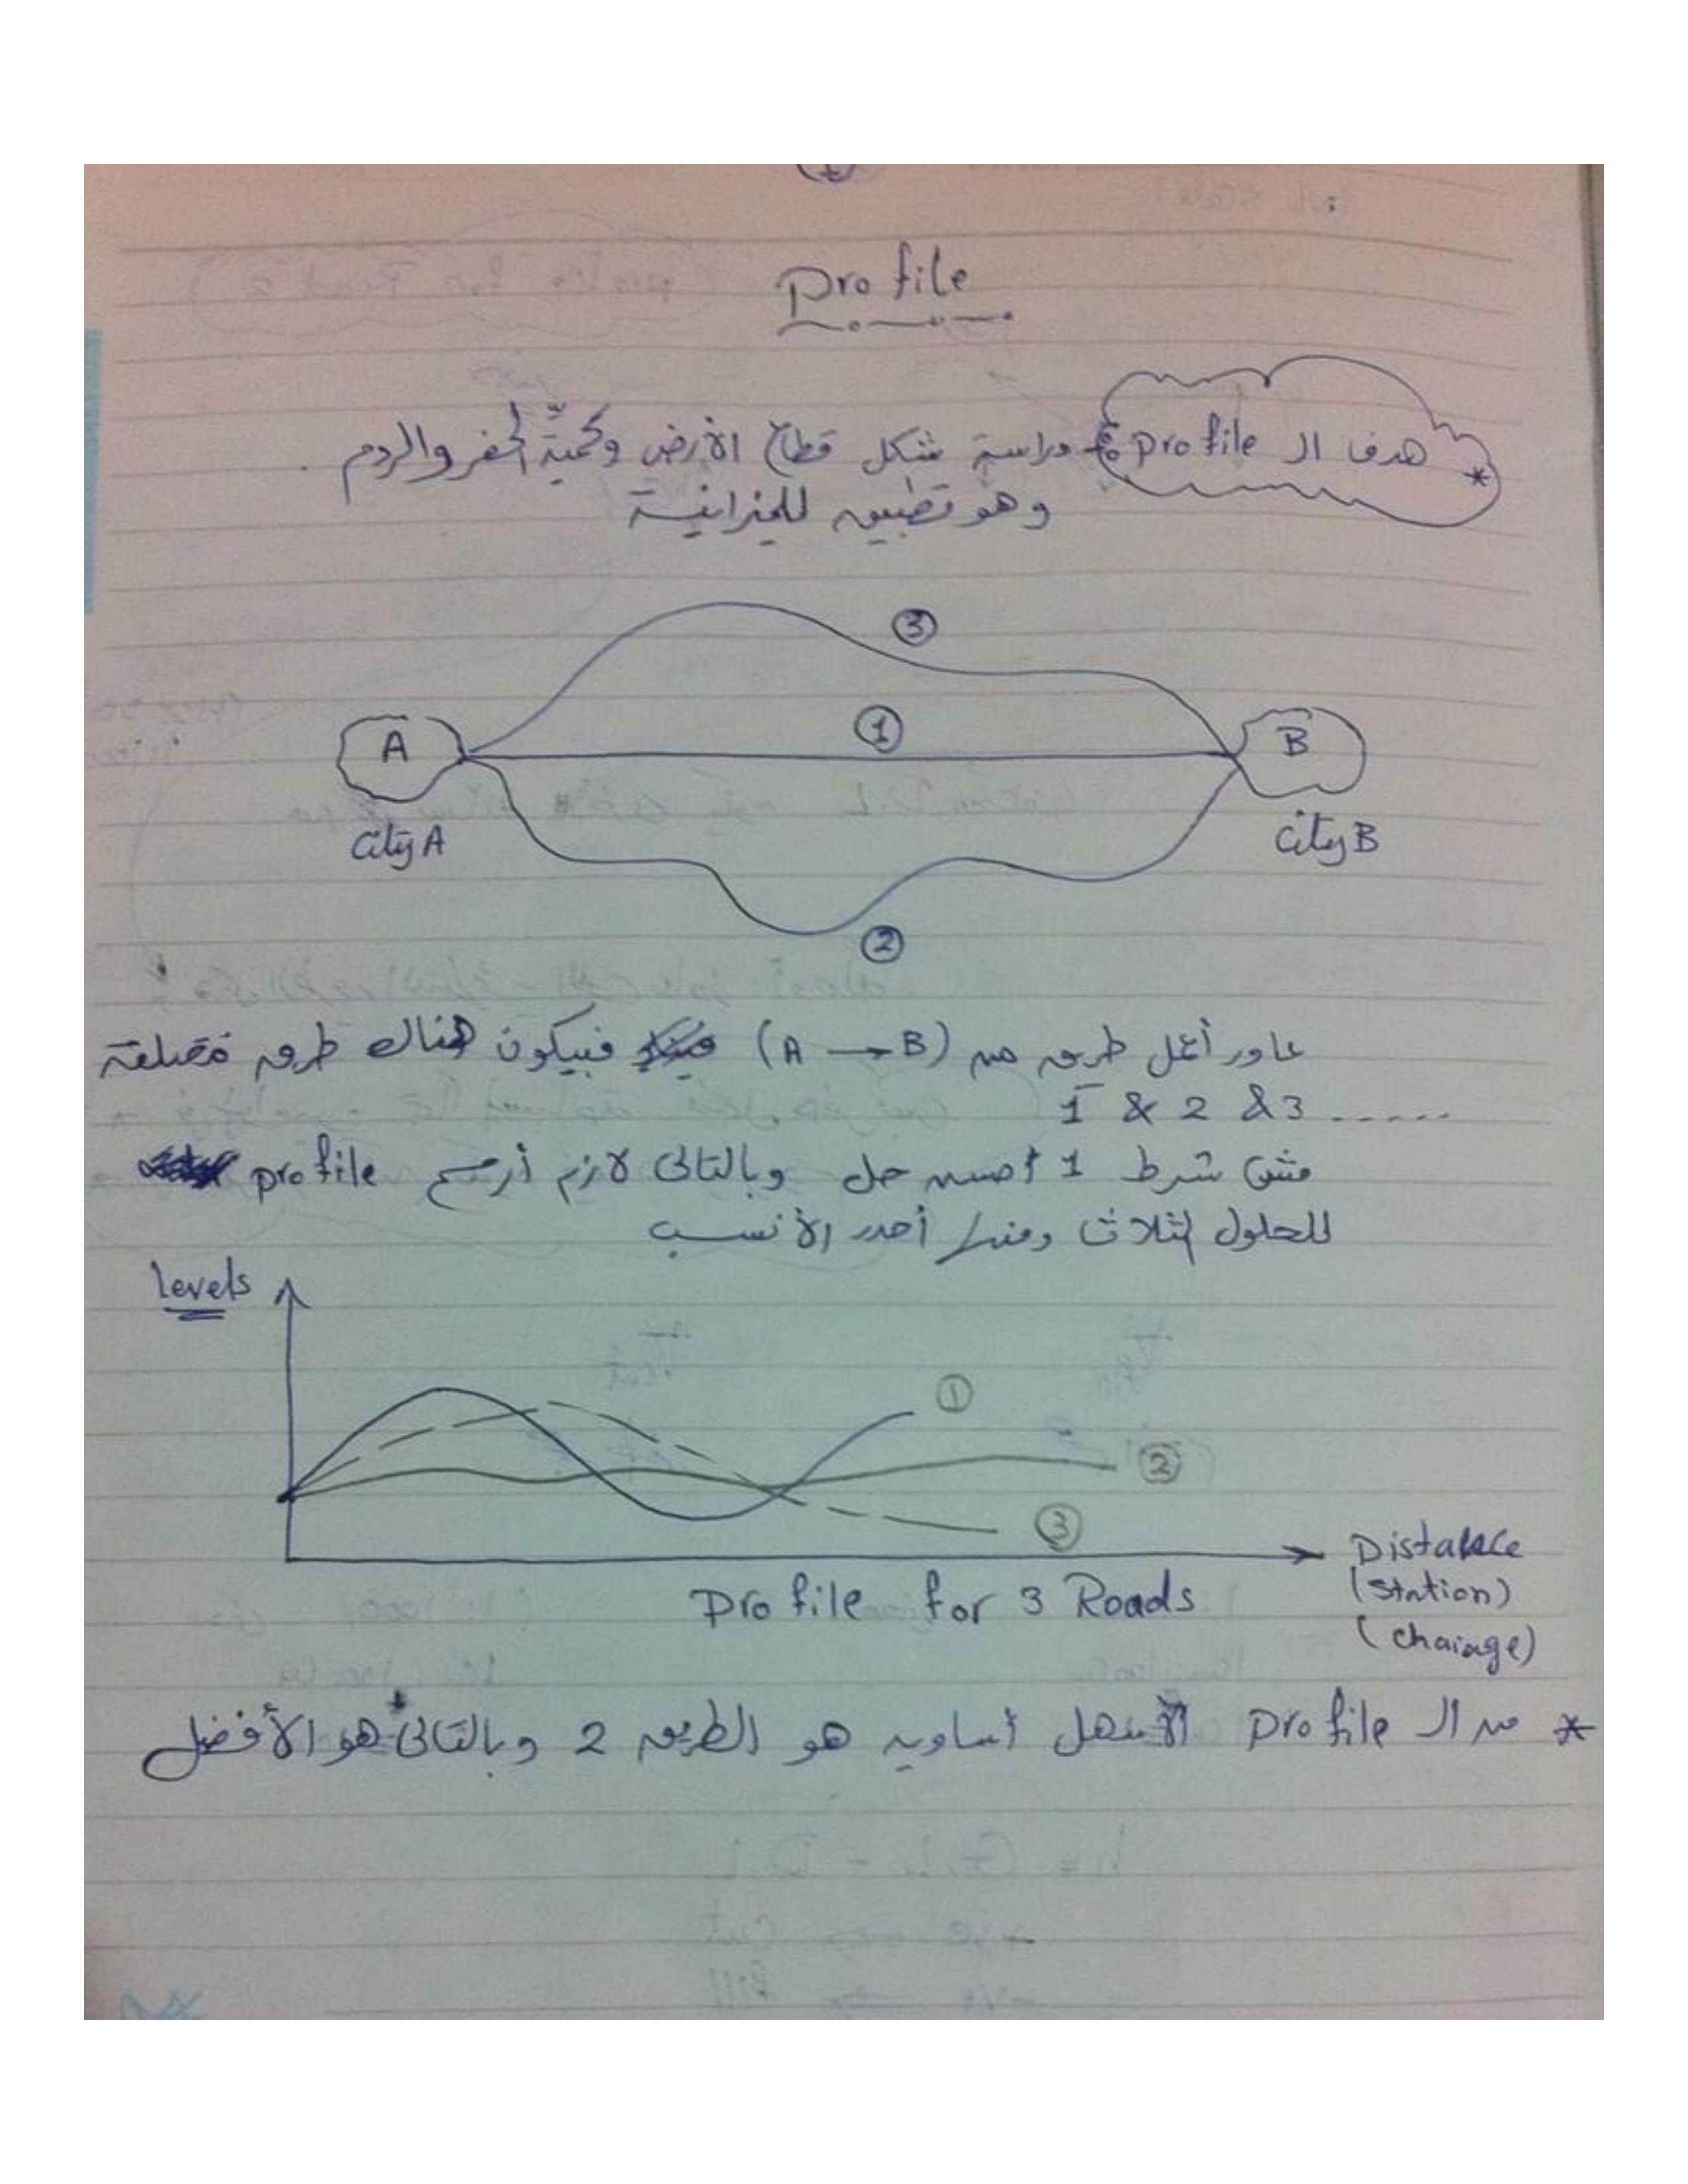 Profile
* هدف ال profile : دراسة شكل قطاع الأرض وكميّة الحفر والردم .
وهو تطبيق للميزانية
3
1
A
B
City A
City B
2
عاوز أعمل طريق من (A → B) فبيكون هناك طرق مختلفة
1 & 2 & 3 ......
مش شرط 1 أحسن حل وبالتالى لازم أرسم profile
للحلول الثلاث ومنها أحدد الأنسب
levels
1
2
3
Distance
(Station)
(chainage)
Profile for 3 Roads
* من ال profile الأسهل أساويه هو الطريق 2 وبالتالى هو الأفضل